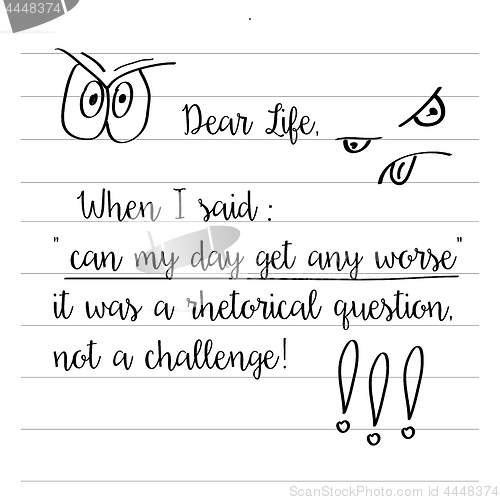 4448374
Dear Life,
When I said :
" can my day get any worse"
it was a rhetorical question,
not a challenge!
!!!
StockphotoSecrets id 4448374